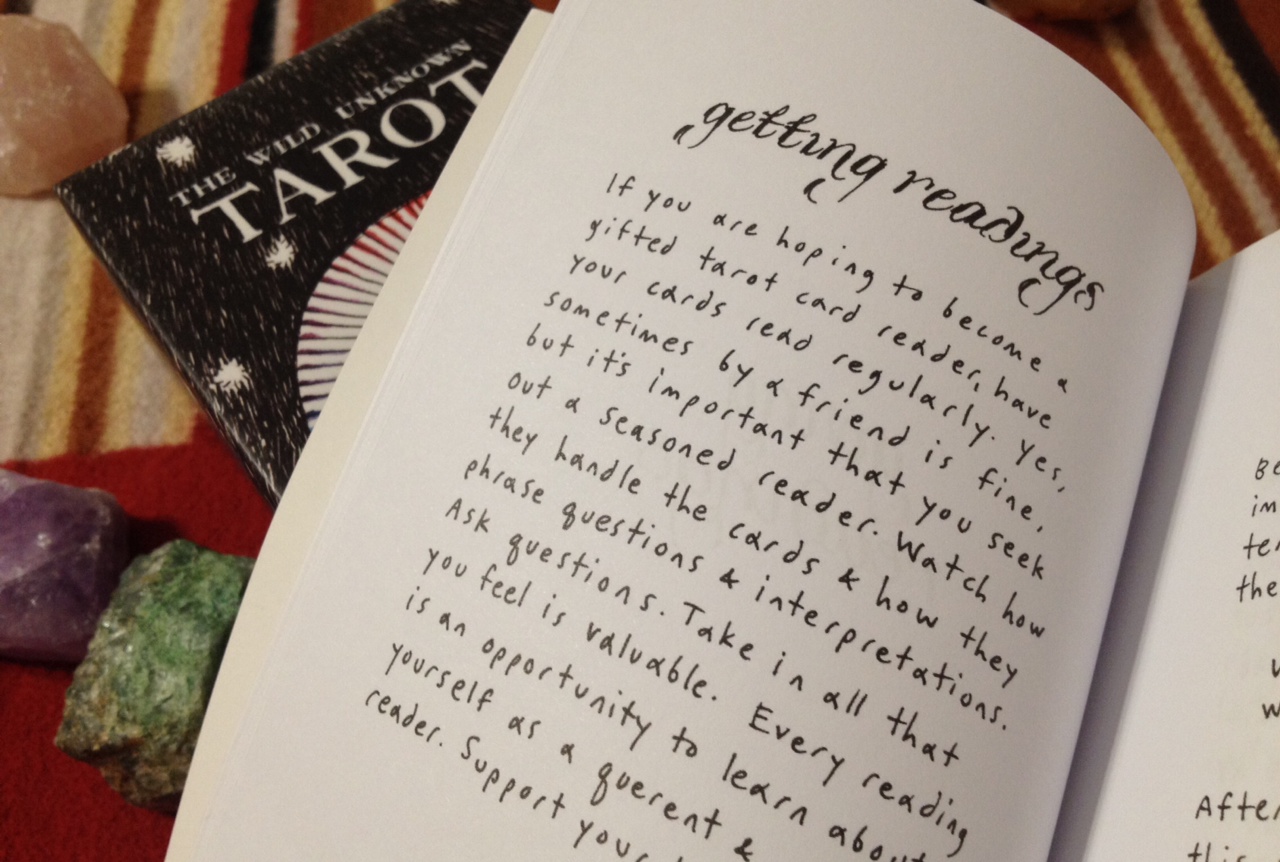 THE WILD UNKNOWN
TAROT
getting readings
If you are hoping to become a
gifted tarot card reader, have
your cards read regularly. Yes,
sometimes by a friend is fine,
but it's important that you seek
out a seasoned reader. Watch how
they handle the cards & how they
phrase questions & interpretations.
Ask questions. Take in all that
you feel is valuable. Every reading
is an opportunity to learn about
yourself as a querent &
reader. Support your
im
the
w
After
this